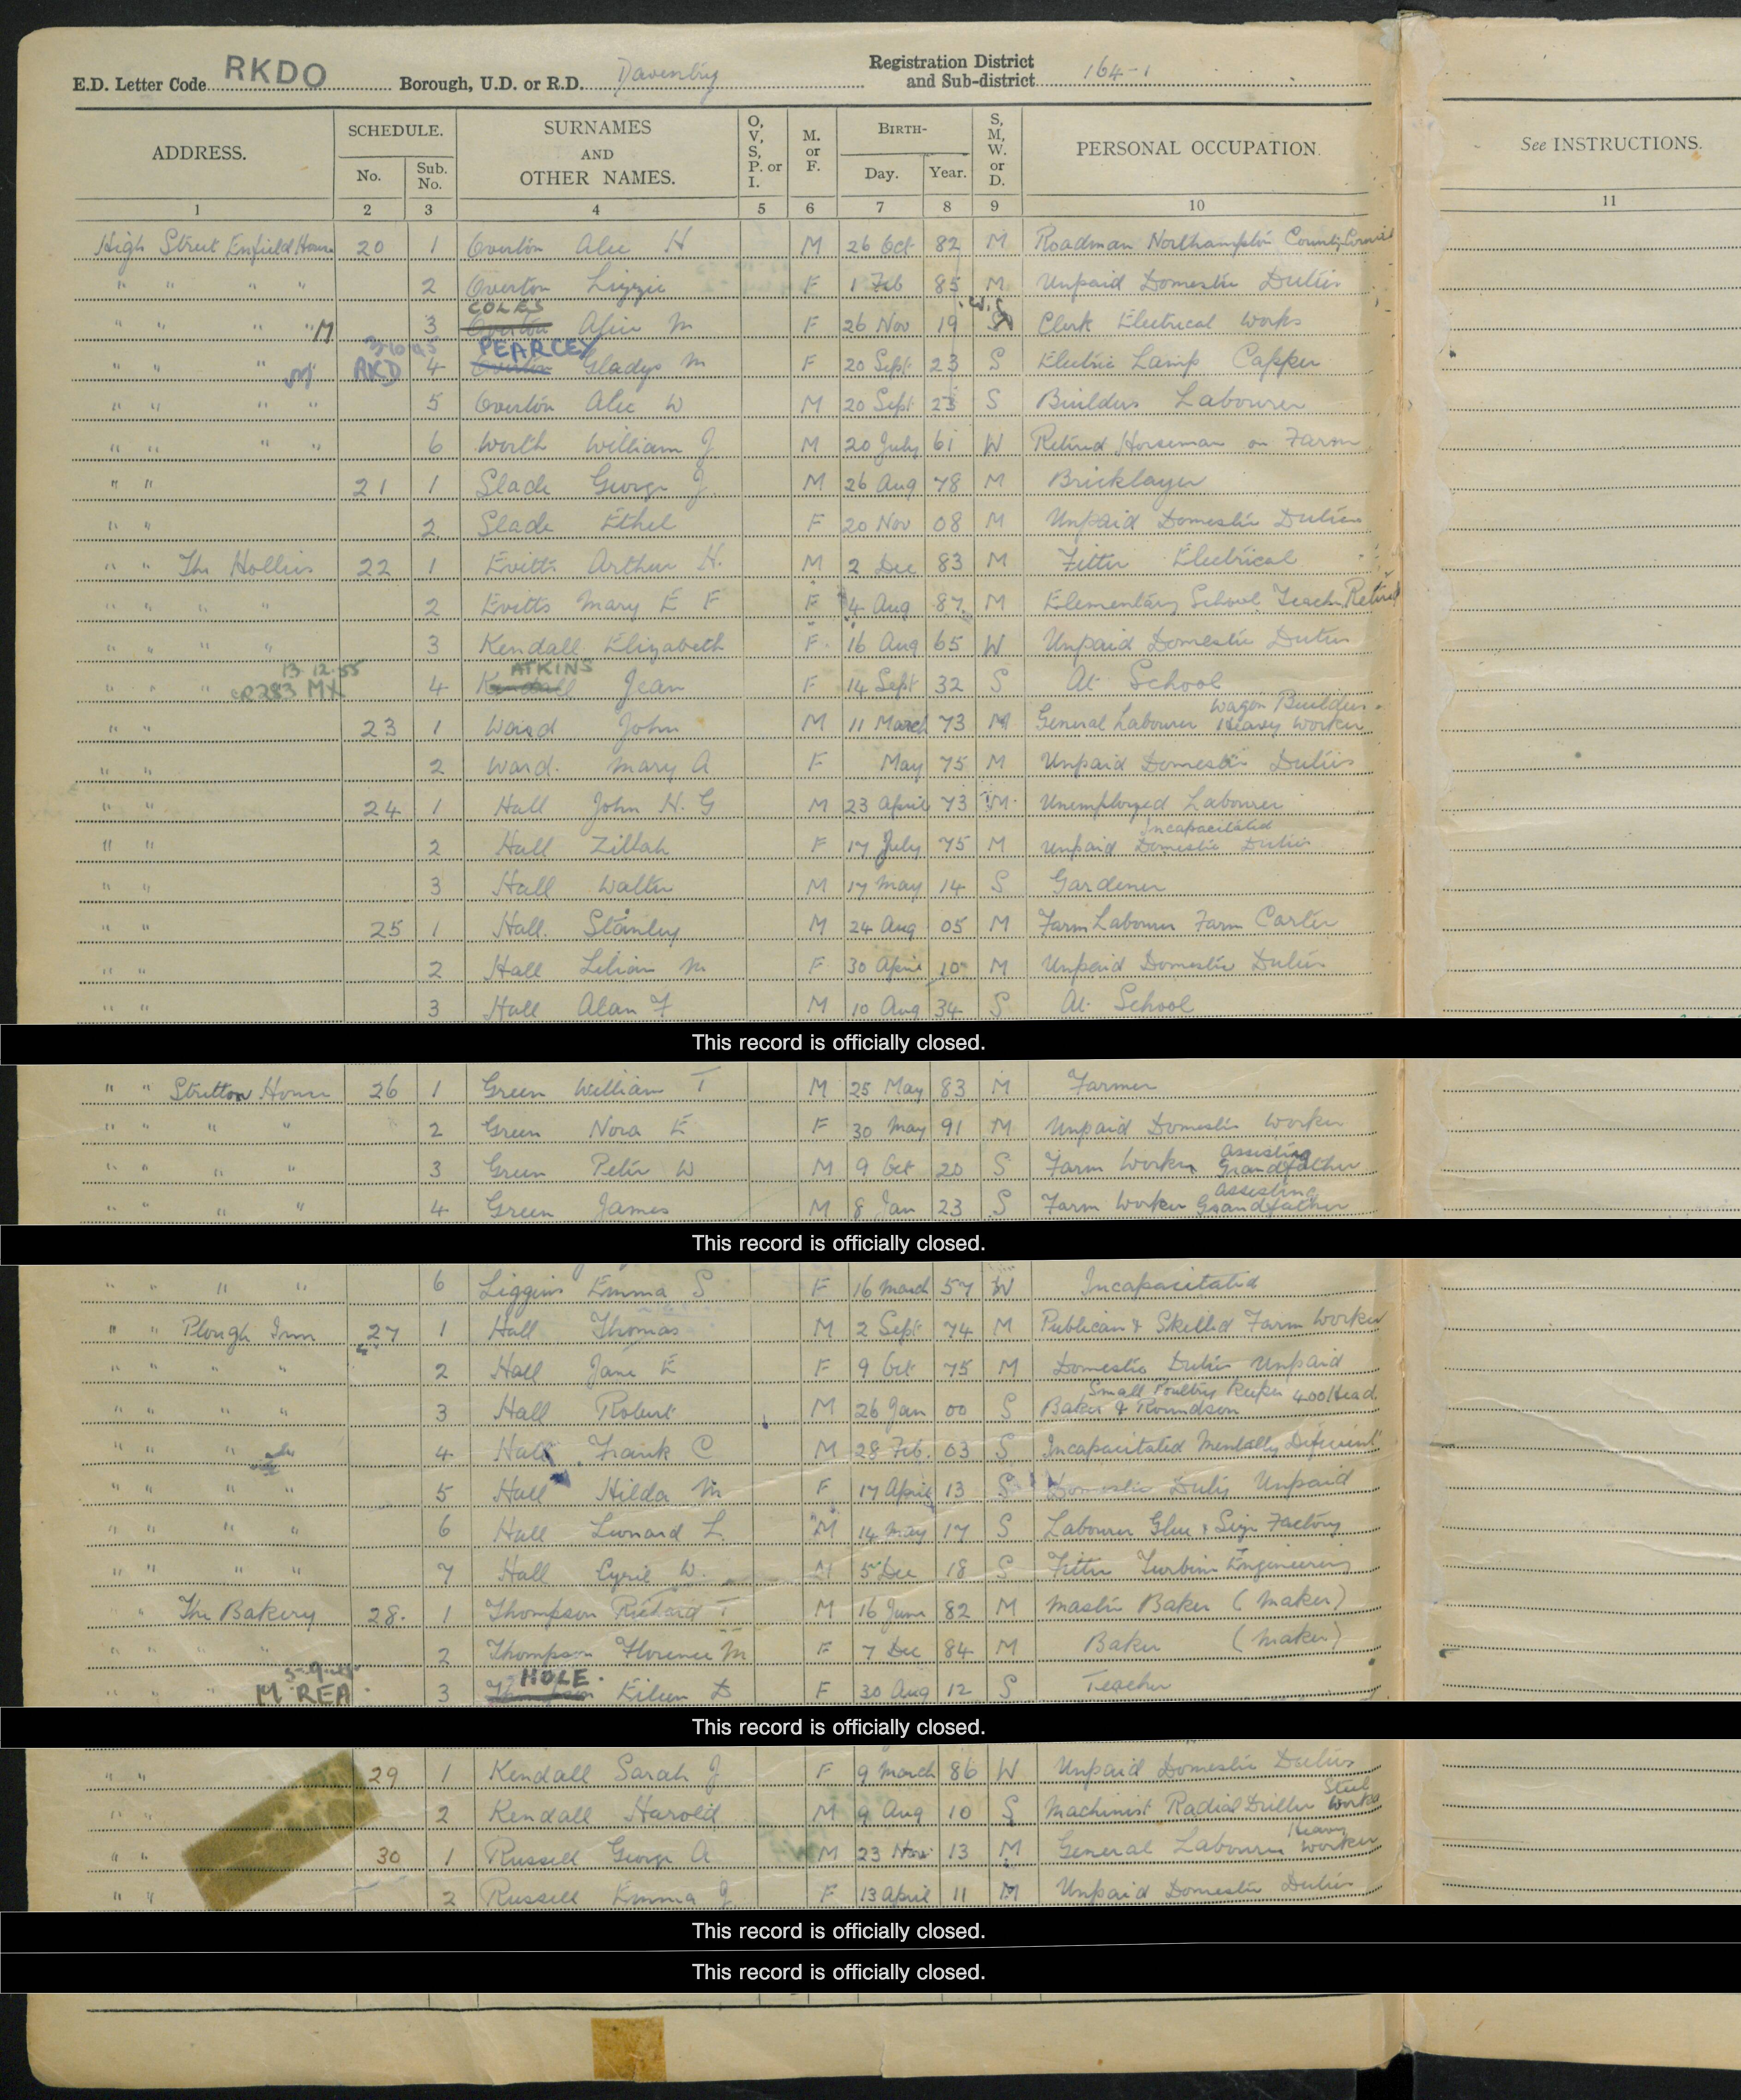 E.D. Letter Code RKDO Borough, U.D. or R.D. Daventry Registration District and Sub-district 164-1
ADDRESS. SCHEDULE. No. Sub. No. SURNAMES AND OTHER NAMES. O, V, S, P. or I. M. or F. BIRTH- Day. Year. S, M, W. or D. PERSONAL OCCUPATION. See INSTRUCTIONS.
1 2 3 4 5 6 7 8 9 10 11
High Street Enfield House 20 1 Overton Alec H M 26 Oct 82 M Roadman Northampton County Council
" " " " 2 Overton Lizzie F 1 Feb 85 M Unpaid Domestic Duties
COLES
" " " " M 3 Overton M F 26 Nov 19 S Clerk Electrical Works
PEARCEY
" " " M RKD 4 Overton Gladys M F 20 Sept 23 S Electric Lamp Capper
" " " " 5 Overton Alec W M 20 Sept 23 S Builders Labourer
" " " " 6 Worth William J M 20 July 61 W Retired Horseman on Farm
" " 21 1 Slade George J M 26 Aug 78 M Bricklayer
" " 2 Slade Ethel F 20 Nov 08 M Unpaid Domestic Duties
" " The Hollies 22 1 Evitts Arthur H. M 2 Dec 83 M Fitter Electrical
" " " " 2 Evitts Mary E F F 4 Aug 87 M Elementary School Teacher Retired
" " " " 3 Kendall Elizabeth F 16 Aug 65 W Unpaid Domestic Duties
13.12.55 ATKINS
" " " MX 4 Kendall Jean F 14 Sept 32 S At School
Wagon Builders
" " 23 1 Ward John M 11 March 73 M General Labourer Heavy Worker
" " 2 Ward Mary A F May 75 M Unpaid Domestic Duties
" " 24 1 Hall John H. G M 23 April 73 M Unemployed Labourer
Incapacitated
" " 2 Hall Zillah F 17 July 75 M Unpaid Domestic Duties
" " 3 Hall Walter M 17 May 14 S Gardener
" " 25 1 Hall Stanley M 24 Aug 05 M Farm Labourer Farm Carter
" " 2 Hall Lilian M F 30 April 10 M Unpaid Domestic Duties
" " 3 Hall Alan F M 10 Aug 34 S At School
This record is officially closed.
" " Stretton House 26 1 Green William T M 25 May 83 M Farmer
" " " " 2 Green Nora E F 30 May 91 M Unpaid Domestic Worker
Assisting
" " " " 3 Green Peter W M 9 Oct 20 S Farm Worker Grandfather
Assisting
" " " " 4 Green James M 8 Jan 23 S Farm Worker Grandfather
This record is officially closed.
" " " " 6 Liggins Emma S F 16 March 57 W Incapacitated
" " Plough Inn 27 1 Hall Thomas M 2 Sept 74 M Publican & Skilled Farm Worker
" " " " 2 Hall Jane E F 9 Oct 75 M Domestic Duties Unpaid
Small Poultry Keeper 400 Head
" " " " 3 Hall Robert M 26 Jan 00 S Baker & Roundsman
" " " " 4 Hall Frank C M 28 Feb. 03 S Incapacitated Mentally Deficient
" " " " 5 Hall Hilda M F 17 April 13 S Domestic Duties Unpaid
" " " " 6 Hall Leonard L. M 14 May 17 S Labourer Glue & Size Factory
" " " " 7 Hall Cyril W. M 5 Dec 18 S Fitter Turbine Engineering
" The Bakery 28. 1 Thompson Richard T M 16 June 82 M Master Baker (Maker)
" " " " 2 Thompson Florence M F 7 Dec 84 M Baker (Maker)
HOLE.
" " " M REA 3 Thompson Eileen B F 30 Aug 12 S Teacher
This record is officially closed.
" " 29 1 Kendall Sarah J F 9 March 86 W Unpaid Domestic Duties
Steel
" " 2 Kendall Harold M 9 Aug 10 S Machinist Radial Driller Works
Heavy
" " 30 1 Russell George A M 23 Nov 13 M General Labourer Worker
" " 2 Russell Emma J F 13 April 11 M Unpaid Domestic Duties
This record is officially closed.
This record is officially closed.